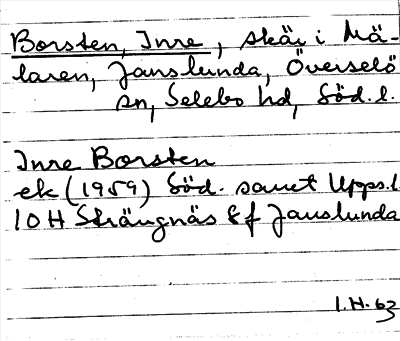 Borsten, Inre, skär i Mä-
laren, Janslunda, Överselö
sn, Selebo hd, Söd. l.
Inre Borsten
ek (1959) Söd. samt Upps. l
10 H Strängnäs 8 f Janslunda
I.H. 63